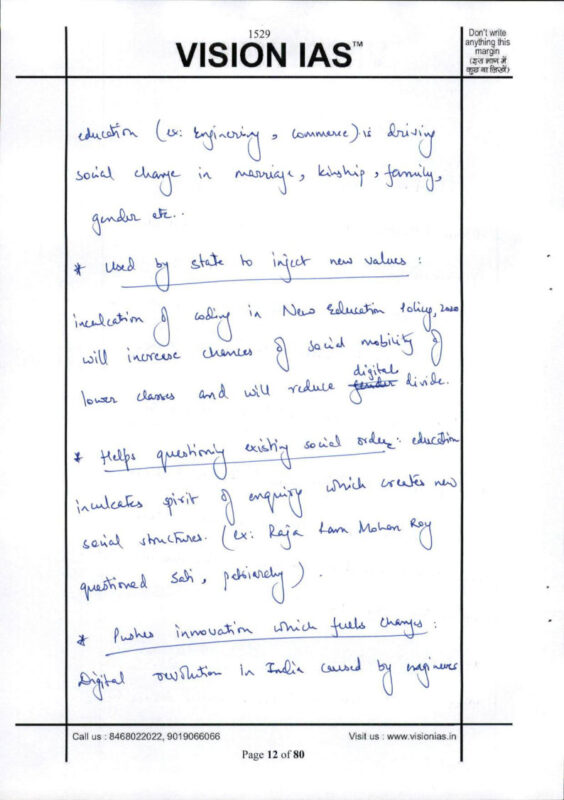 1529
VISION IAS™
Don't write
anything this
margin
(इस भाग में
कुछ ना लिखें)
education (ex: Engineering, commerce) is driving
social change in marriage, kinship, family,
gender etc..
* Used by state to inject new values :
inculcation of coding in New Education Policy, 2020
will increase chances of social mobility of
digital
lower classes and will reduce gender divide.
* Helps questioning existing social order: education
inculcates spirit of enquiry which creates new
social structures. (ex: Raja Ram Mohan Roy
questioned Sati, patriarchy).
* Pushes innovation which fuels changes :
Digital revolution in India caused by engineers
Call us : 8468022022, 9019066066
Visit us : www.visionias.in
Page 12 of 80